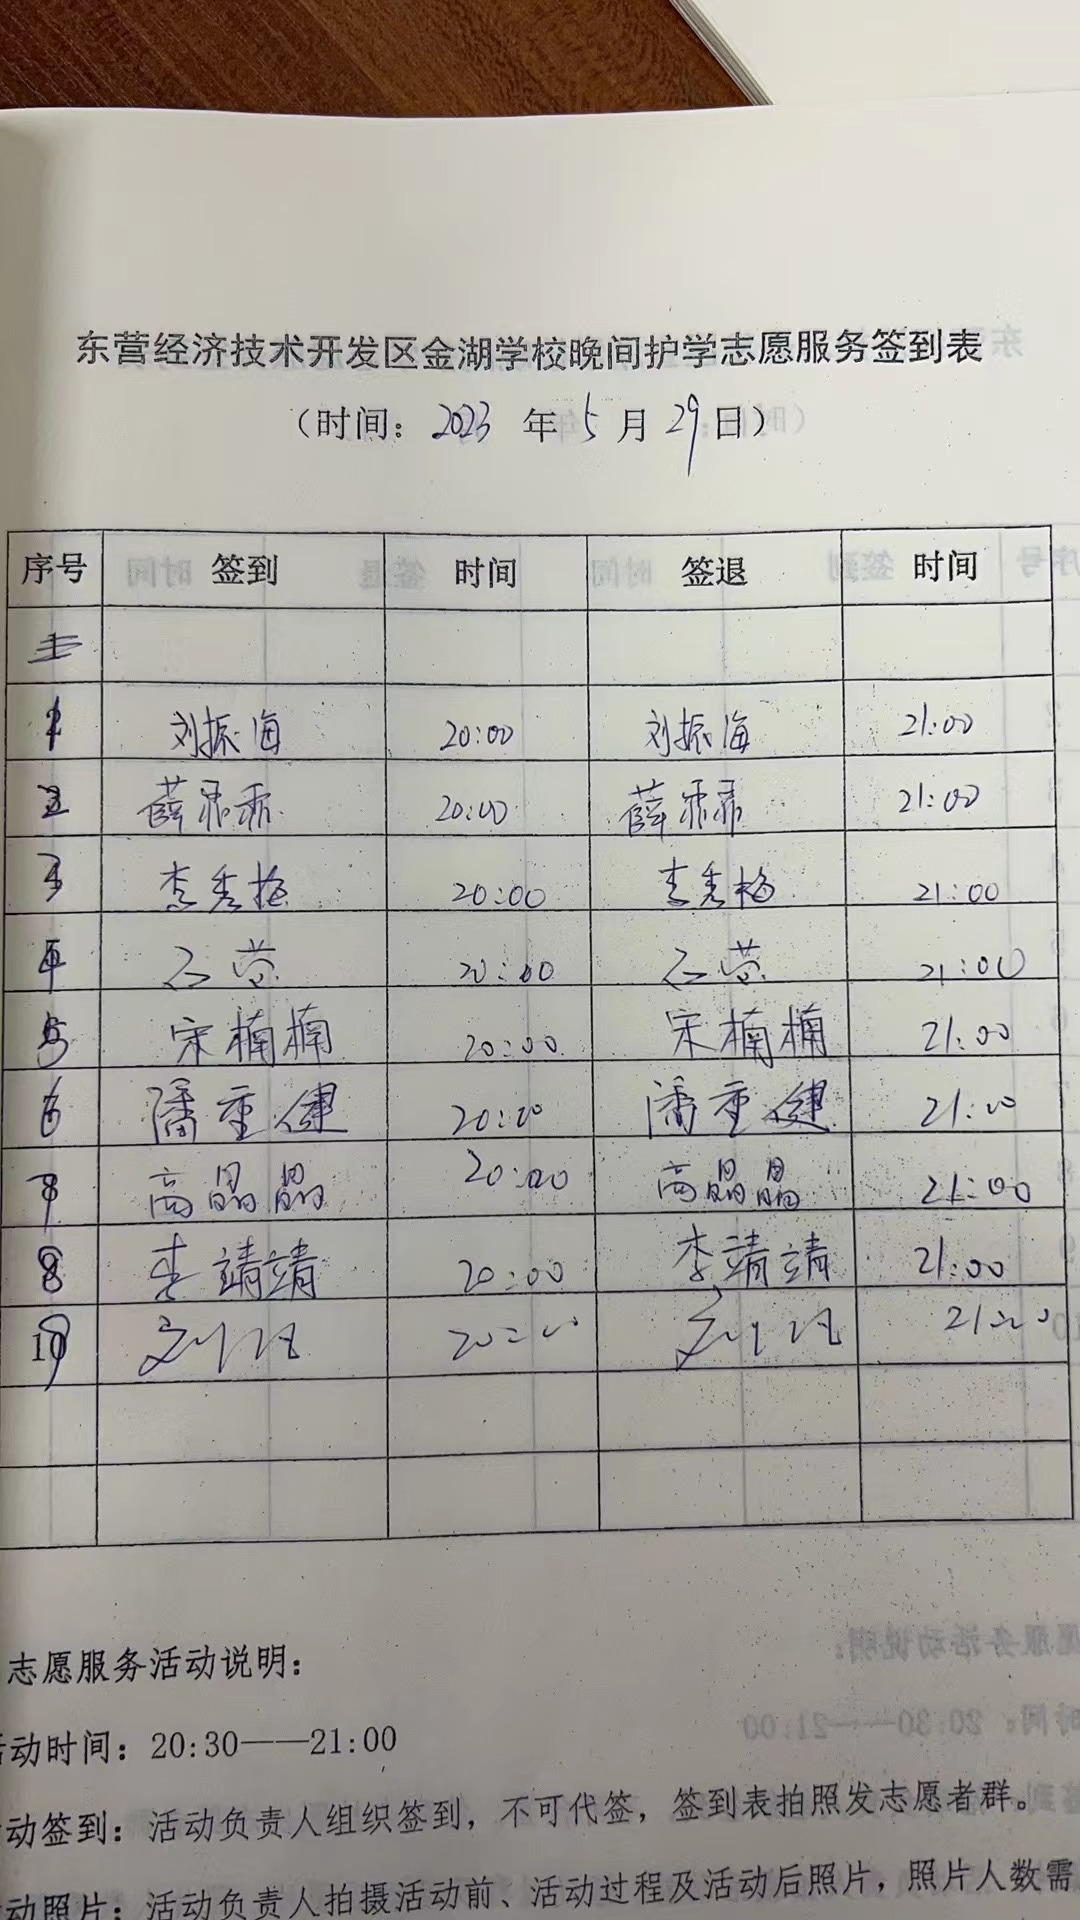 东营经济技术开发区金湖学校晚间护学志愿服务签到表
（时间：2023 年 5 月 29 日）
序号 签到 时间 签退 时间
1 刘振海 20:00 刘振海 21:00
2 薛乖乖 20:00 薛乖乖 21:00
3 李秀梅 20:00 李秀梅 21:00
4 石营 20:00 石营 21:00
5 宋楠楠 20:00 宋楠楠 21:00
6 潘重健 20:00 潘重健 21:00
7 高晶晶 20:00 高晶晶 21:00
8 李靖靖 20:00 李靖靖 21:00
9 20:00 21:00
志愿服务活动说明：
活动时间：20:30——21:00
动签到：活动负责人组织签到，不可代签，签到表拍照发志愿者群。
动照片：活动负责人拍摄活动前、活动过程及活动后照片，照片人数需